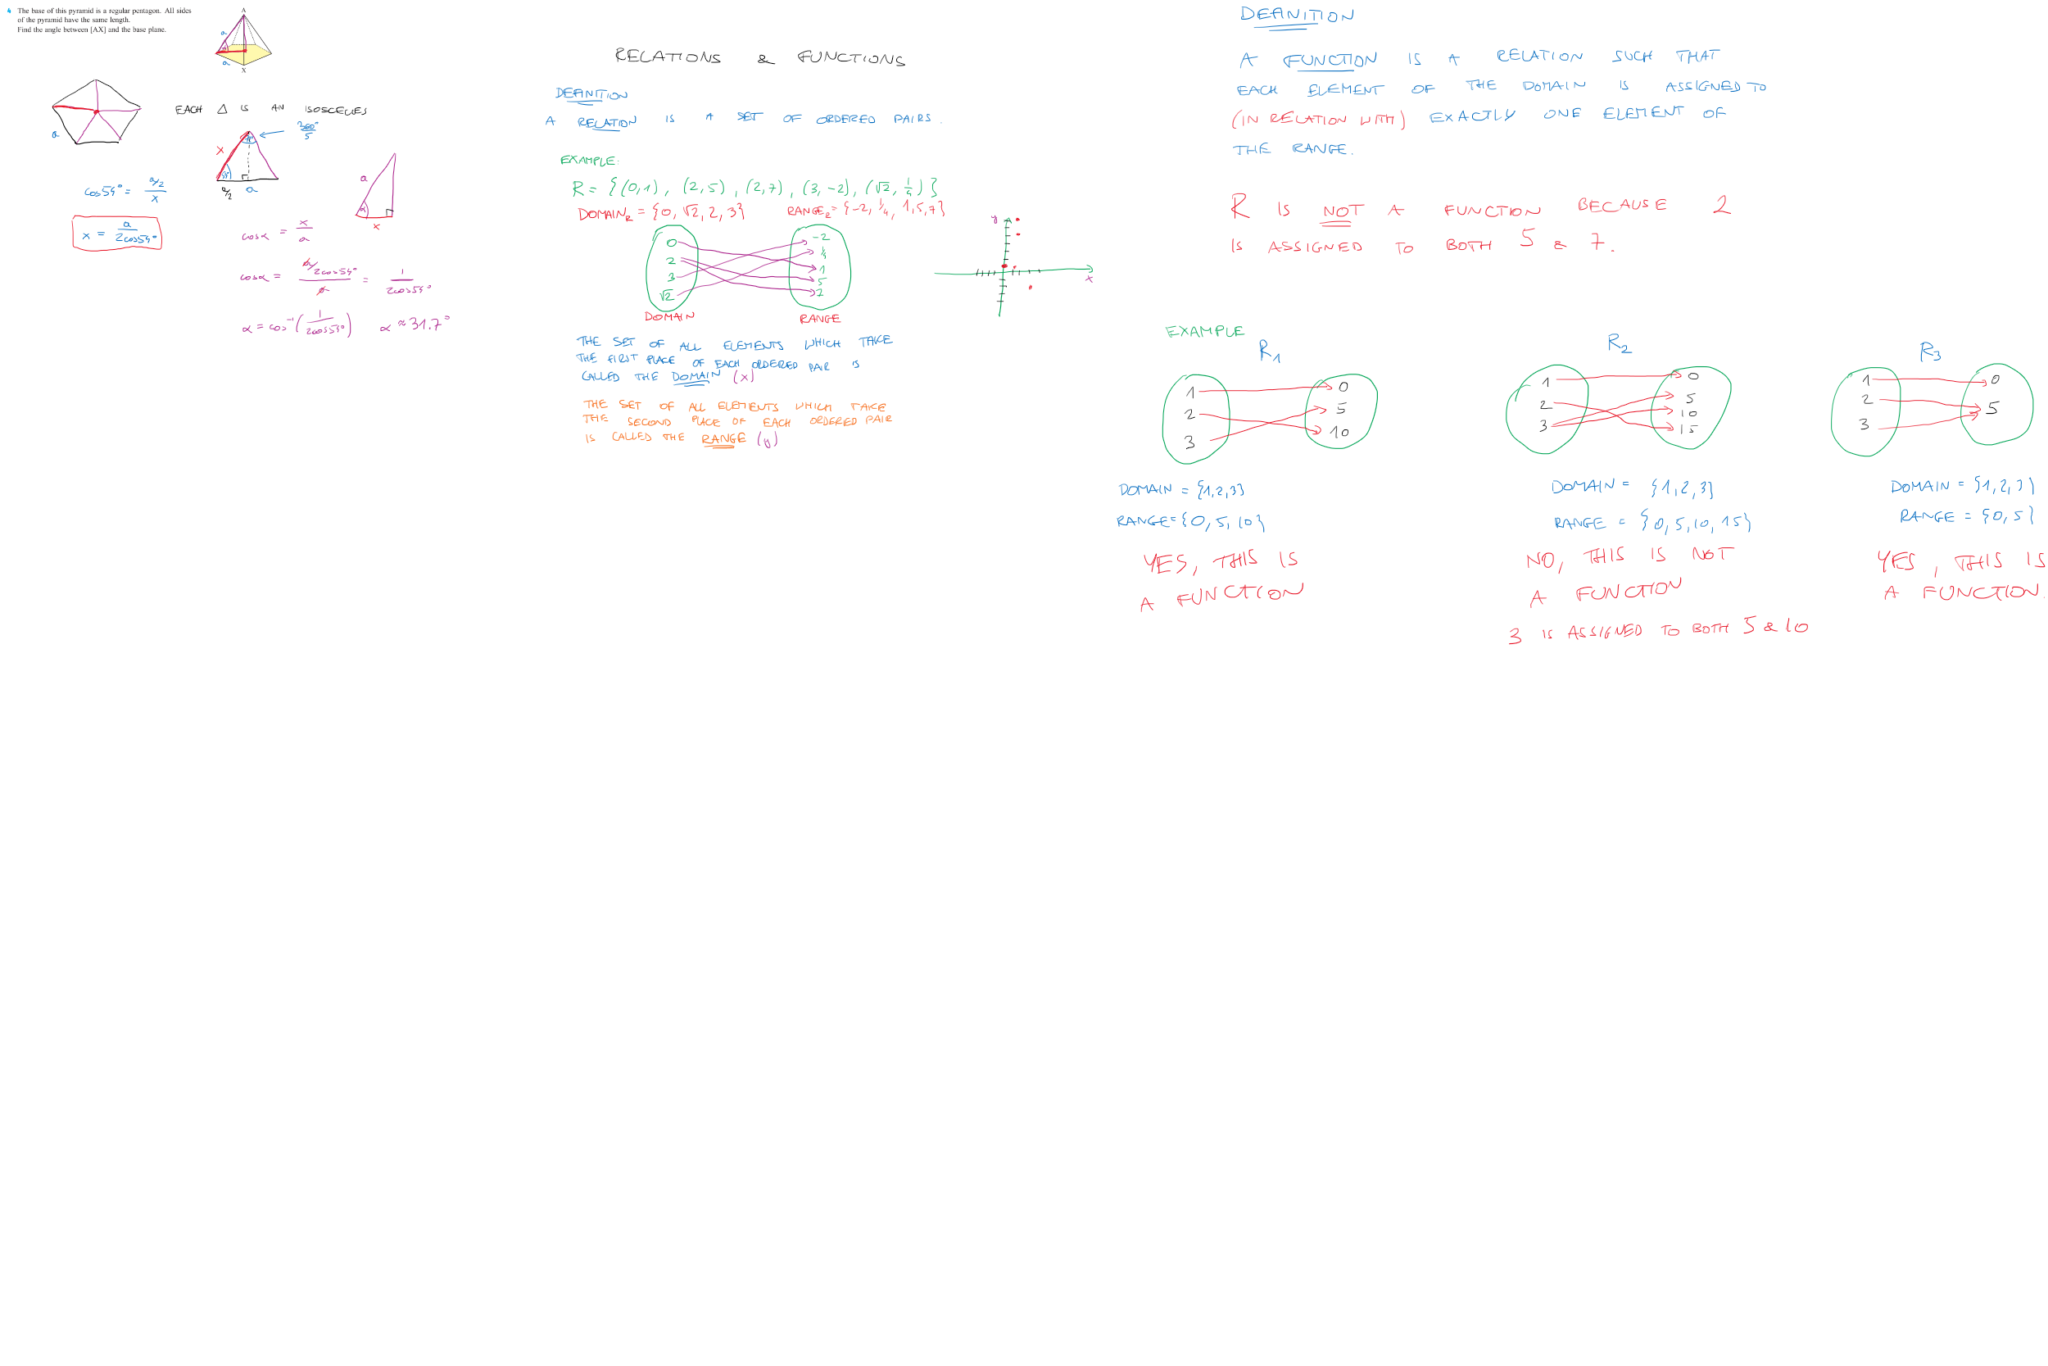 4 The base of this pyramid is a regular pentagon. All sides
of the pyramid have the same length.
Find the angle between [AX] and the base plane.
A
a
a
X
a
EACH △ IS AN ISOSCELIES
360°/5
x
a/2
a
cos54° = (a/2)/x
x = a/(2cos54°)
a
x
cosα = x/a
cosα = (a/2cos54°)/a = 1/(2cos54°)
α = cos⁻¹(1/(2cos54°)) α ≈ 31.7°
RELATIONS & FUNCTIONS
DEFINITION
A RELATION IS A SET OF ORDERED PAIRS.
EXAMPLE:
R = {(0,1), (2,5), (2,7), (3,-2), (√2, 1/4)}
DOMAIN_R = {0, √2, 2, 3} RANGE_R = {-2, 1/4, 1, 5, 7}
0
2
3
√2
-2
1/4
1
5
7
DOMAIN RANGE
y
x
THE SET OF ALL ELEMENTS WHICH TAKE
THE FIRST PLACE OF EACH ORDERED PAIR IS
CALLED THE DOMAIN (x)
THE SET OF ALL ELEMENTS WHICH TAKE
THE SECOND PLACE OF EACH ORDERED PAIR
IS CALLED THE RANGE (y)
DEFINITION
A FUNCTION IS A RELATION SUCH THAT
EACH ELEMENT OF THE DOMAIN IS ASSIGNED TO
(IN RELATION WITH) EXACTLY ONE ELEMENT OF
THE RANGE.
R IS NOT A FUNCTION BECAUSE 2
IS ASSIGNED TO BOTH 5 & 7.
EXAMPLE
R₁
1
2
3
0
5
10
DOMAIN = {1,2,3}
RANGE = {0, 5, 10}
YES, THIS IS
A FUNCTION
R₂
1
2
3
0
5
10
15
DOMAIN = {1,2,3}
RANGE = {0, 5, 10, 15}
NO, THIS IS NOT
A FUNCTION
3 IS ASSIGNED TO BOTH 5 & 10
R₃
1
2
3
0
5
DOMAIN = {1,2,3}
RANGE = {0, 5}
YES, THIS IS
A FUNCTION